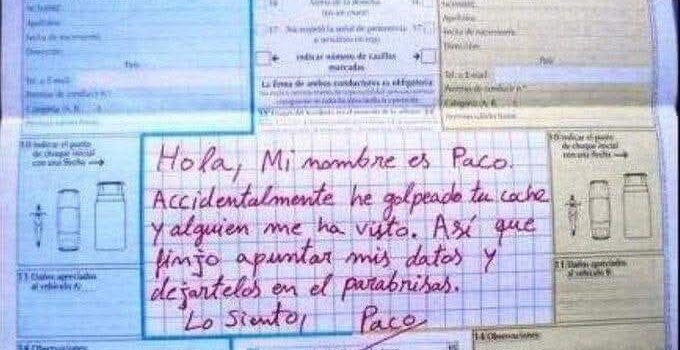 Apellidos:
Fecha de nacimiento:
Dirección:
País
Tel. o E-mail:
Permiso de conducir n.º
Categoría (A, B, )
17 No respetó la señal de preferencia 17
o semáforo en rojo
indicar número de casillas
marcadas
La firma de ambos conductores es obligatoria
Apellidos:
Fecha de nacimiento:
Dirección:
País
Tel. o E-mail:
Permiso de conducir n.º
Categoría (A, B, )
10 Indicar el punto
de choque inicial
con una flecha →
Hola, Mi nombre es Paco.
Accidentalmente he golpeado tu coche
y alguien me ha visto. Así que
finjo apuntar mis datos y
dejartelos en el parabrisas.
Lo siento, Paco
10 Indicar el punto
de choque inicial
con una flecha →
11 Daños apreciados
al vehículo A:
11 Daños apreciados
al vehículo B:
14 Observaciones
14 Observaciones